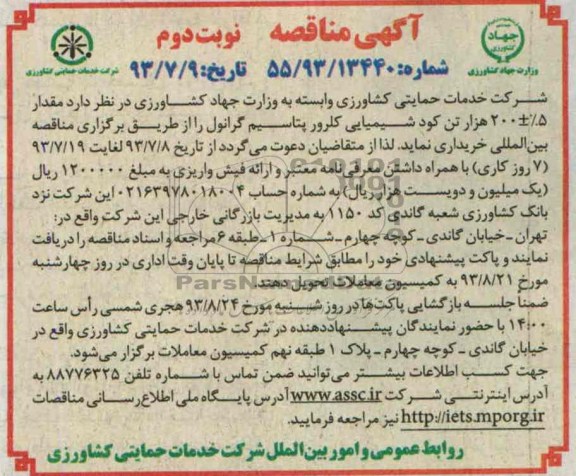 آگهی مناقصه نوبت دوم
جهاد
کشاورزی
وزارت جهاد کشاورزی
شرکت خدمات حمایتی کشاورزی
شماره: ۵۵/۹۳/۱۳۴۴۰ تاریخ: ۹۳/۷/۹
شرکت خدمات حمایتی کشاورزی وابسته به وزارت جهاد کشاورزی در نظر دارد مقدار
۲۰۰±۵٪ هزار تن کود شیمیایی کلرور پتاسیم گرانول را از طریق برگزاری مناقصه
بین‌المللی خریداری نماید. لذا از متقاضیان دعوت می‌گردد از تاریخ ۹۳/۷/۸ لغایت ۹۳/۷/۱۹
(۷ روز کاری) با همراه داشتن معرفی نامه معتبر و ارائه فیش واریزی به مبلغ ۱۲۰۰۰۰۰ ریال
(یک میلیون و دویست هزار ریال) به شماره حساب ۰۲۱۶۳۹۷۸۰۱۸۰۰۴ این شرکت نزد
بانک کشاورزی شعبه گاندی کد ۱۱۵۰ به مدیریت بازرگانی خارجی این شرکت واقع در:
تهران ـ خیابان گاندی ـ کوچه چهارم ـ شماره ۱ ـ طبقه ۶ مراجعه و اسناد مناقصه را دریافت
نمایند و پاکت پیشنهادی خود را مطابق شرایط مناقصه تا پایان وقت اداری در روز چهارشنبه
مورخ ۹۳/۸/۲۱ به کمیسیون معاملات تحویل دهند.
ضمنا جلسه بازگشایی پاکت‌ها در روز شنبه مورخ ۹۳/۸/۲۴ هجری شمسی رأس ساعت
۱۴:۰۰ با حضور نمایندگان پیشنهاددهنده در شرکت خدمات حمایتی کشاورزی واقع در
خیابان گاندی ـ کوچه چهارم ـ پلاک ۱ طبقه نهم کمیسیون معاملات برگزار می‌شود.
جهت کسب اطلاعات بیشتر می‌توانید ضمن تماس با شماره تلفن ۸۸۷۷۶۳۲۵ به
آدرس اینترنتی شرکت www.assc.ir آدرس پایگاه ملی اطلاع رسانی مناقصات
http://iets.mporg.ir نیز مراجعه فرمایید.
روابط عمومی و امور بین الملل شرکت خدمات حمایتی کشاورزی